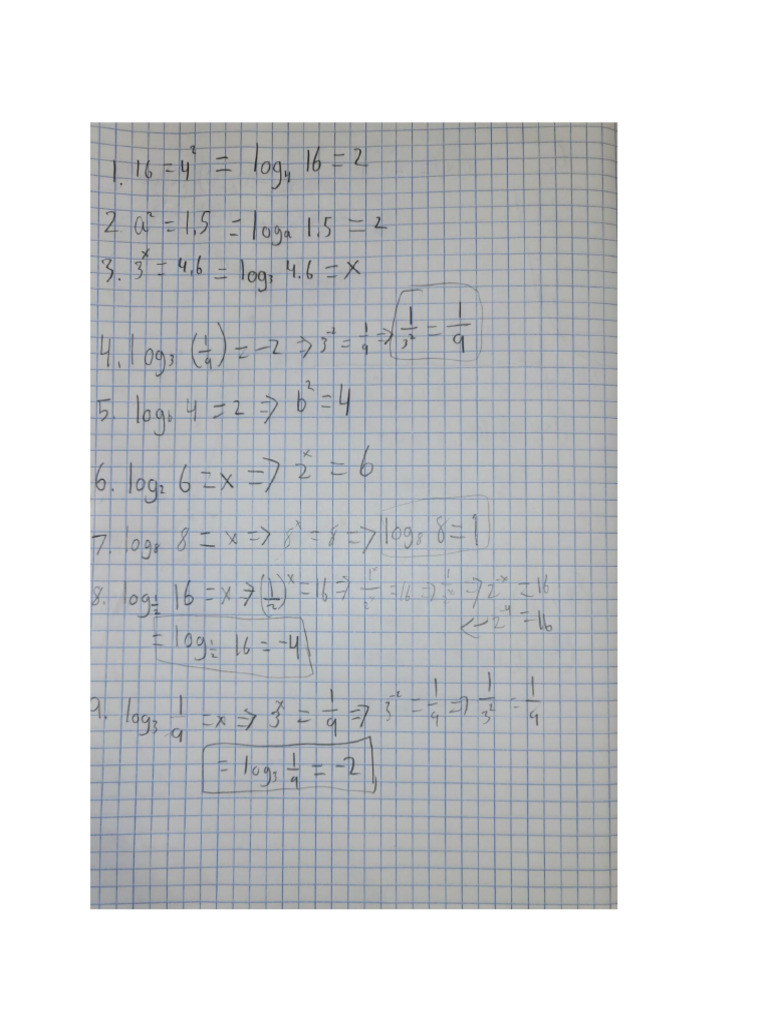 1. 16 = 4² = log₄ 16 = 2
2 a² = 1.5 = logₐ 1.5 = 2
3. 3ˣ = 4.6 = log₃ 4.6 = x
4. log₃ (1/9) = -2 => 3⁻² = 1/9 => 1/3² = 1/9
5. log_b 4 = 2 => b² = 4
6. log₂ 6 = x => 2ˣ = 6
7. log₈ 8 = x => 8ˣ = 8 => log₈ 8 = 1
8. log_{1/2} 16 = x => (1/2)ˣ = 16 => 1ˣ/2ˣ = 16 => => 2⁻ˣ = 16
<- 2⁻⁴ = 16
= log_{1/2} 16 = -4
9. log₃ 1/9 = x => 3ˣ = 1/9 => 3⁻² = 1/9 => 1/3² = 1/9
= log₃ 1/9 = -2